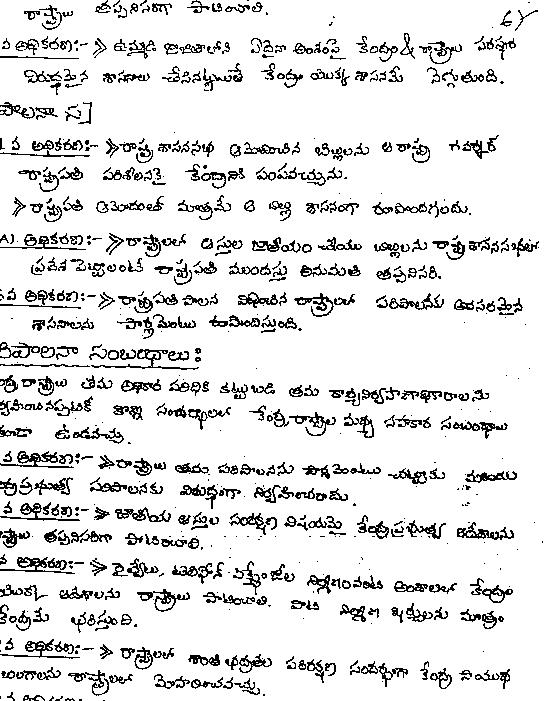 రాష్ట్రాలు తప్పనిసరిగా పాటించాలి.
వ అధికరణ:- ఉమ్మడి జాబితాలోని ఏదైనా అంశంపై కేంద్రం & రాష్ట్రాలు పరస్పర
విరుద్ధమైన శాసనాలు చేసినట్లయితే కేంద్రం యొక్క శాసనమే నెగ్గుతుంది.
వ అధికరణ:- రాష్ట్ర శాసనసభ ఆమోదించిన బిల్లులను ఆ రాష్ట్ర గవర్నర్
రాష్ట్రపతి పరిశీలనకై కేంద్రానికి పంపవచ్చును.
రాష్ట్రపతి ఆమోదంతో మాత్రమే ఆ బిల్లు శాసనంగా రూపొందగలదు.
అధికరణ:- రాష్ట్రాలలో ఆస్తుల జాతీయం చేయు బిల్లులను రాష్ట్ర శాసనసభలో
ప్రవేశ పెట్టాలంటే రాష్ట్రపతి ముందస్తు అనుమతి తప్పనిసరి.
వ అధికరణ:- రాష్ట్రపతి పాలన విధించిన రాష్ట్రాలలో పరిపాలనకు అవసరమైన
శాసనాలను పార్లమెంటు రూపొందిస్తుంది.
పాలనా సంబంధాలు:
రాష్ట్రాలు తమ అధికార పరిధికి కట్టుబడి తమ కార్యనిర్వహణాధికారాలను
కొన్ని సందర్భాలలో కేంద్ర, రాష్ట్రాల మధ్య సహకార సంబంధాలు
ఉండవచ్చు.
వ అధికరణ:- రాష్ట్రాలు తమ పరిపాలనను పార్లమెంటు చట్టాలకు మరియు
పరిపాలనకు విరుద్ధంగా నిర్వహించరాదు.
వ అధికరణ:- జాతీయ ఆస్తుల సంరక్షణ విషయమై కేంద్రప్రభుత్వ ఆదేశాలను
తప్పనిసరిగా పాటించాలి.
వ అధికరణ:- రైల్వేలు, టెలిఫోన్ నిర్మాణంవంటి అంశాలలో కేంద్రం
ఆదేశాలను రాష్ట్రాలు పాటించాలి. వాటి నిర్మాణ ఖర్చులను మాత్రం
కేంద్రమే భరిస్తుంది.
వ అధికరణ:- రాష్ట్రాలలో శాంతి భద్రతల పరిరక్షణ సందర్భంగా కేంద్ర సాయుధ
బలగాలను రాష్ట్రాలలో మోహరించవచ్చు.